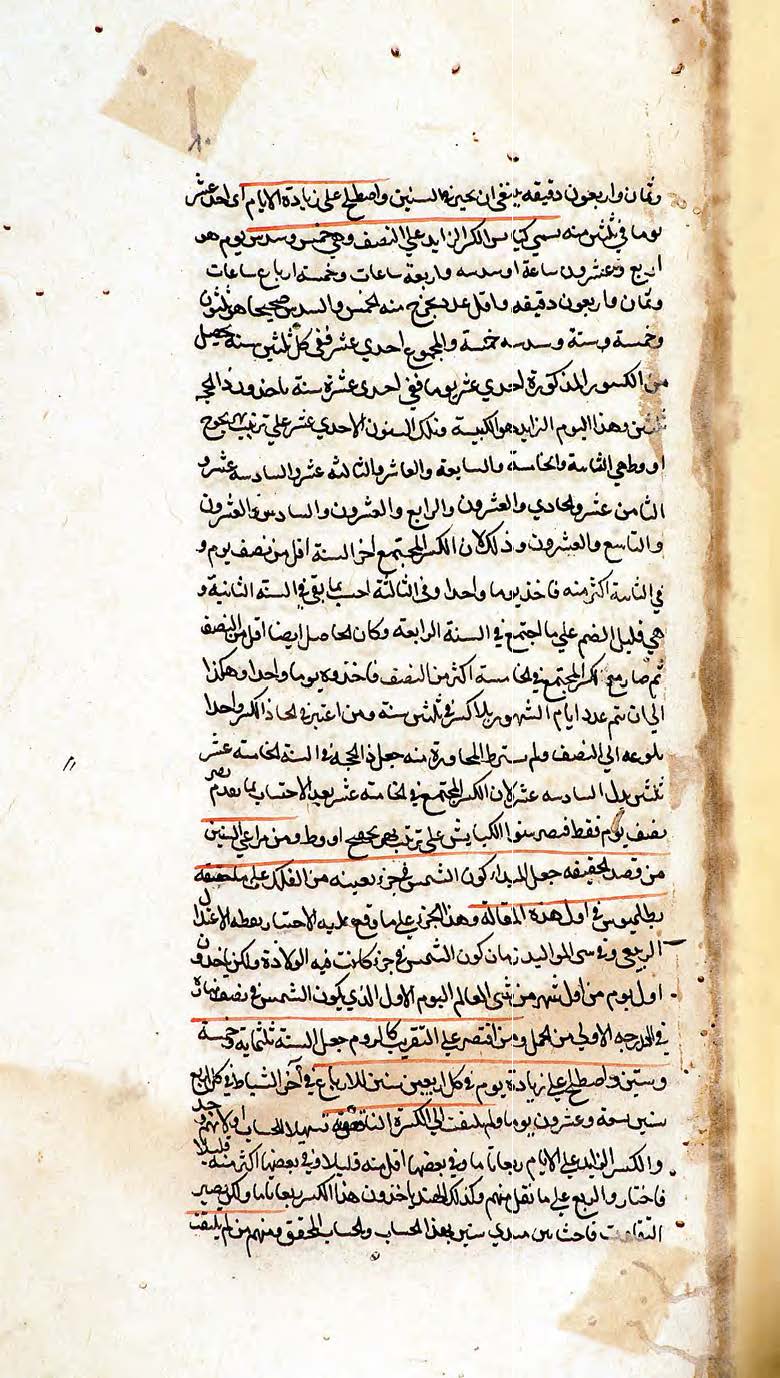 وثمان واربعون دقيقه ينبغي ان السنين واصطلح على زيادة الايام اي احد عشر
يوما في ثلثين منه يسمي كبايس الكسر الزايد علي النصف وهي خمس وسدس يوم هو
اربع وعشرون ساعة او سدسه واربعة ساعات وخمسة ارباع ساعات
وثمان واربعون دقيقه واقل عدد يخرج منه الخمس والسدس صحيحا هو ثلثون
وخمسة وستة وسدسه خمسة والمجموع احدي عشر ففي كل ثلثين سنة يحصل
من الكسور المذكورة احدي عشر يوما ففي احدي عشرة سنة ياخذون ذالحجه
ثلثين وهذا اليوم الزايد هو الكبيسة وتلك السنون الاحدي عشر علي ترتيب بهزيجوح
ادوط هي الثانية والخامسة والسابعة والعاشر والثالثه عشر والسادسه عشر و
الثامن عشر والحادي والعشرون والرابع والعشرون والسادس والعشرون
والتاسع والعشرون وذلك لان الكسر المجتمع اخر السنة اقل من نصف يوم و
في الثانية اكثر منه فاخذ يوما واحدا وفي الثالثة احسب بما بقي في السنة الثانية و
هي قليل الضم علي ما اجتمع في السنة الرابعة وكان الحاصل ايضا اقل من النصف
ثم صار مع الكسر المجتمع في الخامسة اكثر من النصف فاخذوه يوما واحدا وهكذا
الي ان يتم عدد ايام الشهور بلا كسر في ثلثين سنة ومن اعتبر في اتخاذ الكسر واحدا
بلوغه الي النصف ولم يشترط المجاوزة منه جعل ذا الحجه في السنة الخامسة عشر
ثلثين بدل السادسه عشر لان الكسر المجتمع في الخامسة عشر بعد الاحتساب بما تقدم يصير
نصف يوم فقط فيصير سنوا الكبايس على ترتيب بهزيجهح ادوط ومن مراعي السنين
من قصد الحقيقه جعل المبداء كون الشمس في جزء بعينه من الفلك على ما حققه
بطلميوس في اول هذه المقالة وهذا الجزء على ما وقع عليه الاختيار نقطه الاعتدال
الربيعي وفي سني المواليد زمان كون الشمس في جزء كانت فيه الولادة ولكن ياخذون
اول يوم من اول شهر من سني العالم اليوم الاول الذي يكون الشمس في نصف نهاره
في الدرجه الاولي من الحمل ومن اقتصر علي التقريب كالروم جعل السنة ثلثمايه وخمسة
وستين واصطلح علي زيادة يوم في كل اربعين سنين للارباع في آخر الشباط في كل اربع
سنين تسعة وعشرون يوما ولم يلتفت الي الكسرة الناقصة تسهيلا للحساب او لانهم وجدوا
والكسر الزايد علي الايام ربعا تاما وفي بعضها اقل منه قليلا وفي بعضها اكثر منه قليلا
فاختاروا الربع علي ما نقل منهم وكذلك الهند ياخذون هذا الكسر ربعا تاما ولكن يصير
التفاوت فاحشا بين مبدي سنين بهذا الحساب والحساب المحقق ومنهم من لم يلتفت